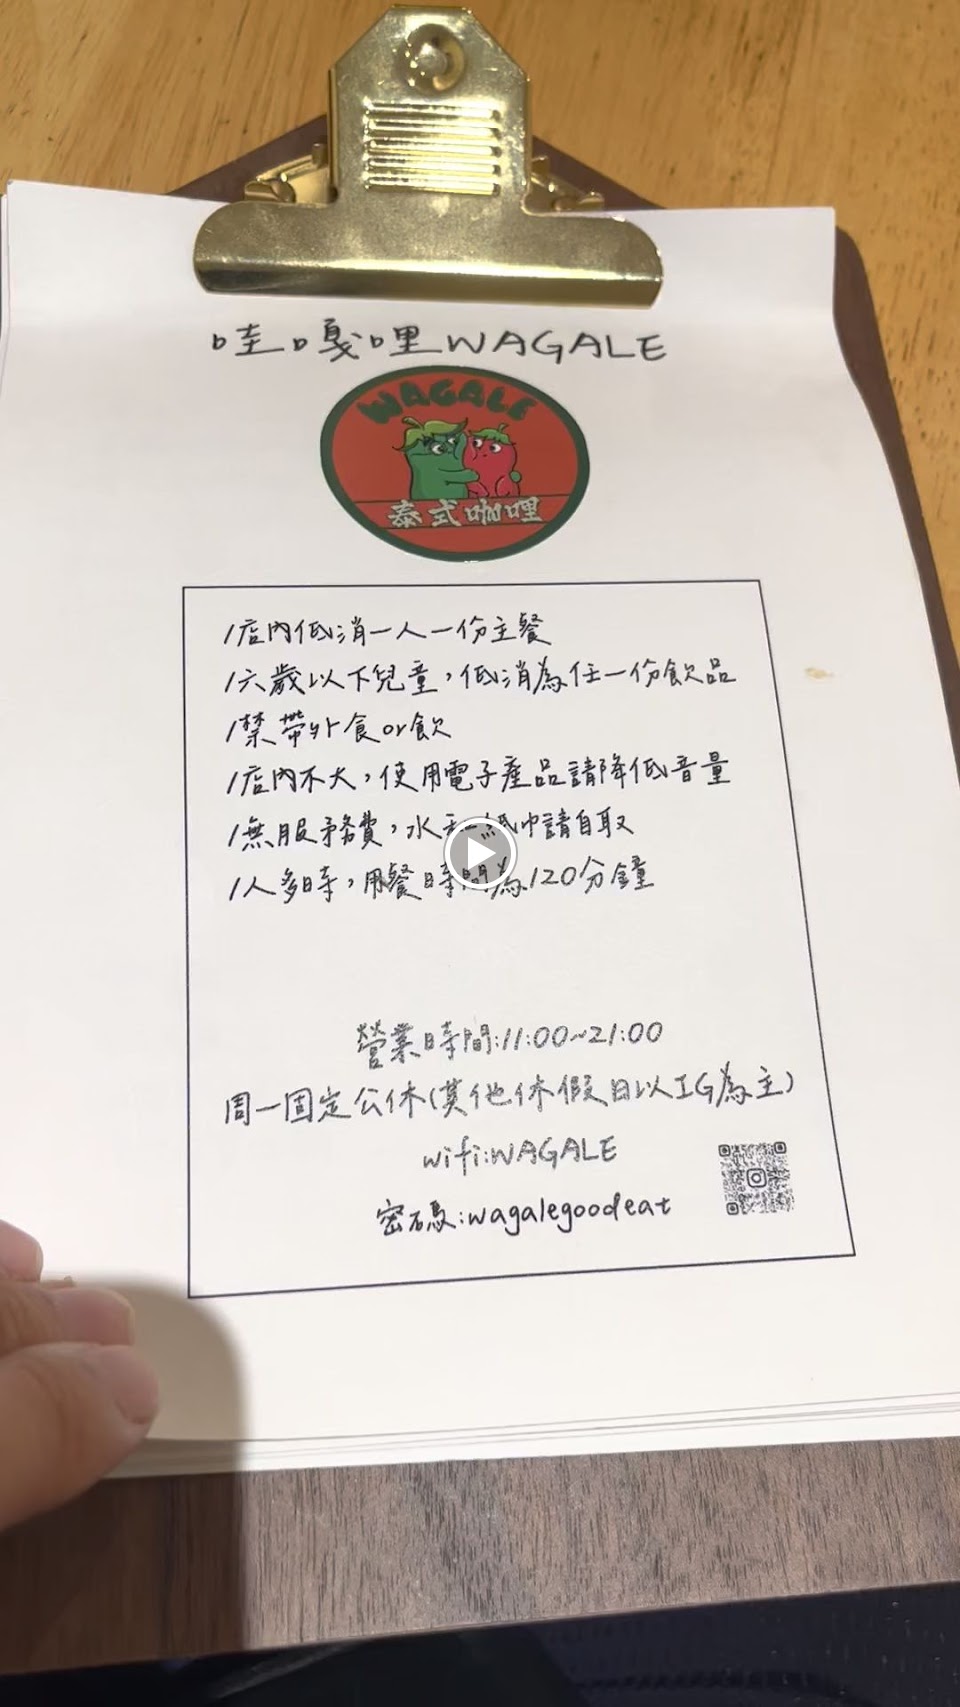 哇嘎哩WAGALE
WAGALE
泰式咖哩
/店內低消一人一份主餐
/六歲以下兒童，低消為任一份飲品
/禁帶外食or飲
/店內不大，使用電子產品請降低音量
/無服務費，水和紙巾請自取
/人多時，用餐時間為120分鐘
營業時間:11:00~21:00
周一固定公休(其他休假日以IG為主)
wifi:WAGALE
密碼:wagalegoodeat